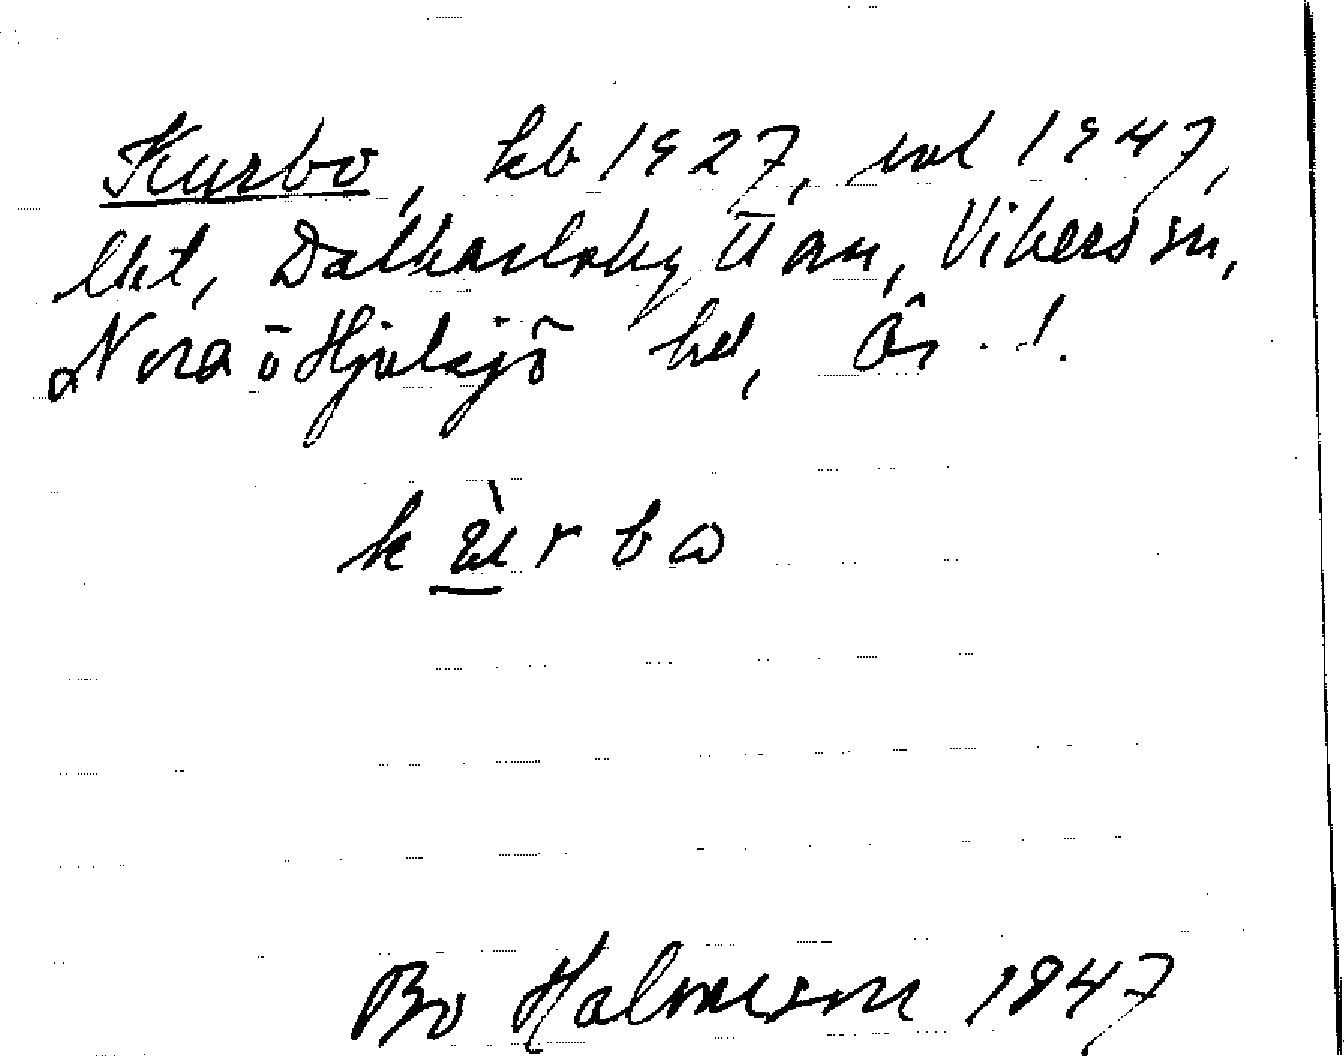 Kurbo, kb 1927, uel 1947,
lht, Dalkarlshyttan, Vikers sn,
Nora o Hjulsjö hd, Ör. l.
k ù r b ω
Bo Halvarson 1947